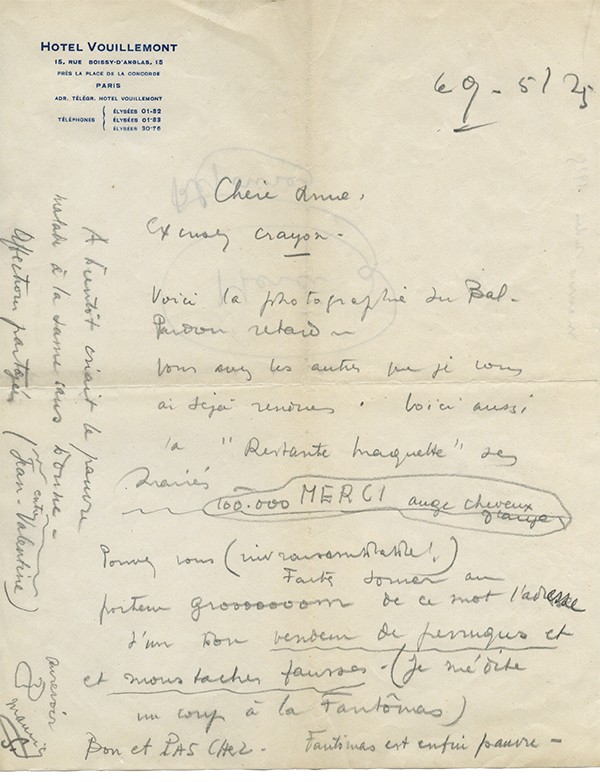 HOTEL VOUILLEMONT
15, RUE BOISSY-D'ANGLAS, 15
PRÈS LA PLACE DE LA CONCORDE
PARIS
ADR. TÉLÉGR. HOTEL VOUILLEMONT
TÉLÉPHONES
ÉLYSÉES 01-82
ÉLYSÉES 01-83
ÉLYSÉES 30-76
5/25
Chère Anna,
Excusez crayon -
Voici la photographie du Bal -
Pardon retard
Vous avez les autres que je vous
ai déjà rendues. Voici aussi
la " Restante maquette " des
Mariés
100.000 MERCI ange cheveux
d'ange
Pouvez vous (invraisemblable!)
Faites donner au
porteur grooooooom de ce mot l'adresse
d'un bon vendeur de perruques et
et moustaches fausses - (je médite
un coup à la Fantômas)
Bon et PAS CHER - Fantômas est enfin pauvre -
A bientôt criait le pauvre
malade à la dame sans bonne -
Affections partagées (entre
Jean-Valentine)
aurevoir